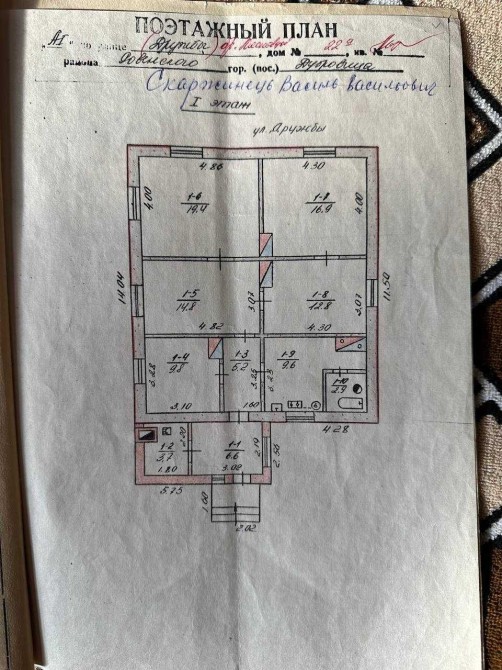 ПОЭТАЖНЫЙ ПЛАН
„А-I" по улице Дружбы , дом № 22а , кв. №
района гор. (пос.) Дубровица
Скаржинець Василь Васильович
I этаж
ул. Дружбы
4.86 4.30
4.00 1-6 19.4 1-7 16.9 4.00
14.04 11.50
1-5 14.8 3.07 1-8 12.8 3.07
4.82 4.30
1-4 9.8 1-3 5.2 1-9 9.6
3.28 3.25 5.23 1-10 2.9
3.10 1.60
4.28
1-2 3.7 1-1 6.6 2.19 2.56
1.80 3.02
5.75
1.00
2.02